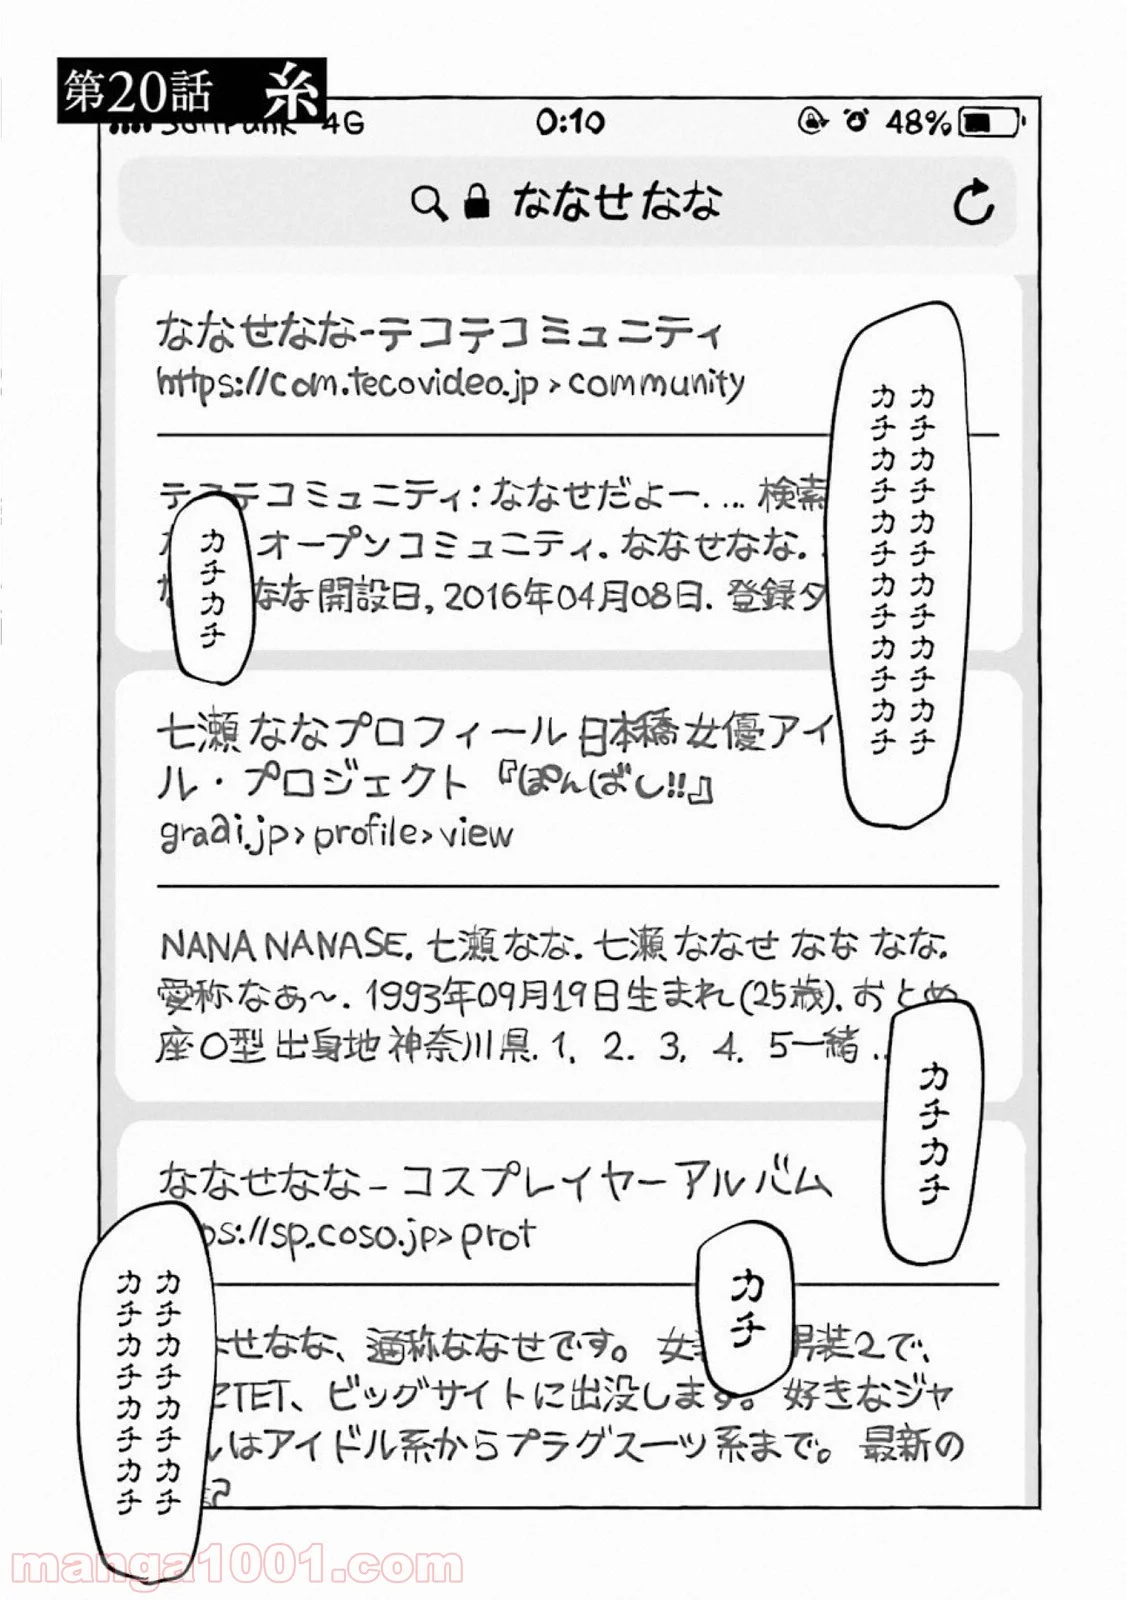 第20話 糸
4G 0:10 48%
ななせ なな
ななせなな-テコテコミュニティ
https://com.tecovideo.jp›community
テコテコミュニティ:ななせだよー. ... 検索
オープンコミュニティ. ななせなな.
なな開設日, 2016年04月08日. 登録タ
カチカチカチカチカチカチ
カチカチカチカチカチカチ
カチカチ
七瀬 ななプロフィール 日本橋 女優アイ
ル・プロジェクト『ぽんばし!!』
graai.jp›profile›view
NANA NANASE. 七瀬 なな. 七瀬 ななせ なな なな.
愛称 なぁ〜. 1993年09月19日生まれ(25歳). おとめ
座O型 出身地 神奈川県. 1. 2. 3. 4. 5一緒 ..
カチカチ
ななせなな – コスプレイヤーアルバム
ps://sp.coso.jp›prot
カチ
せなな、通称ななせです。 女 男装2で、
TET、ビッグサイトに出没します。 好きなジャ
ルはアイドル系からプラグスーツ系まで。 最新の
記
カチカチカチカチ
カチカチカチカチ
manga1001.com